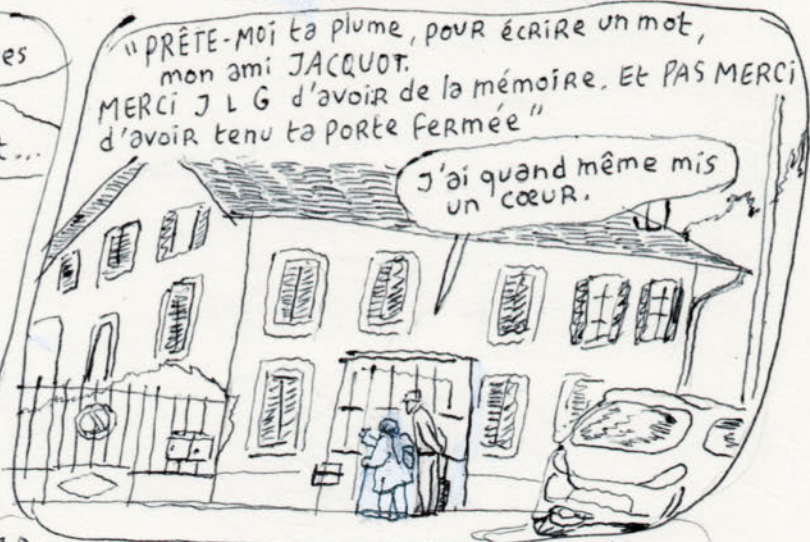 es
"PRÊTE-MOi ta plume, pouR écRiRe un mot,
mon ami JACQUOT.
MERCi J L G d'avoiR de la mémoiRe. Et PAS MERCi
d'avoiR tenu ta PoRte FeRmée"
t...
J'ai quand même mis
un cœuR.